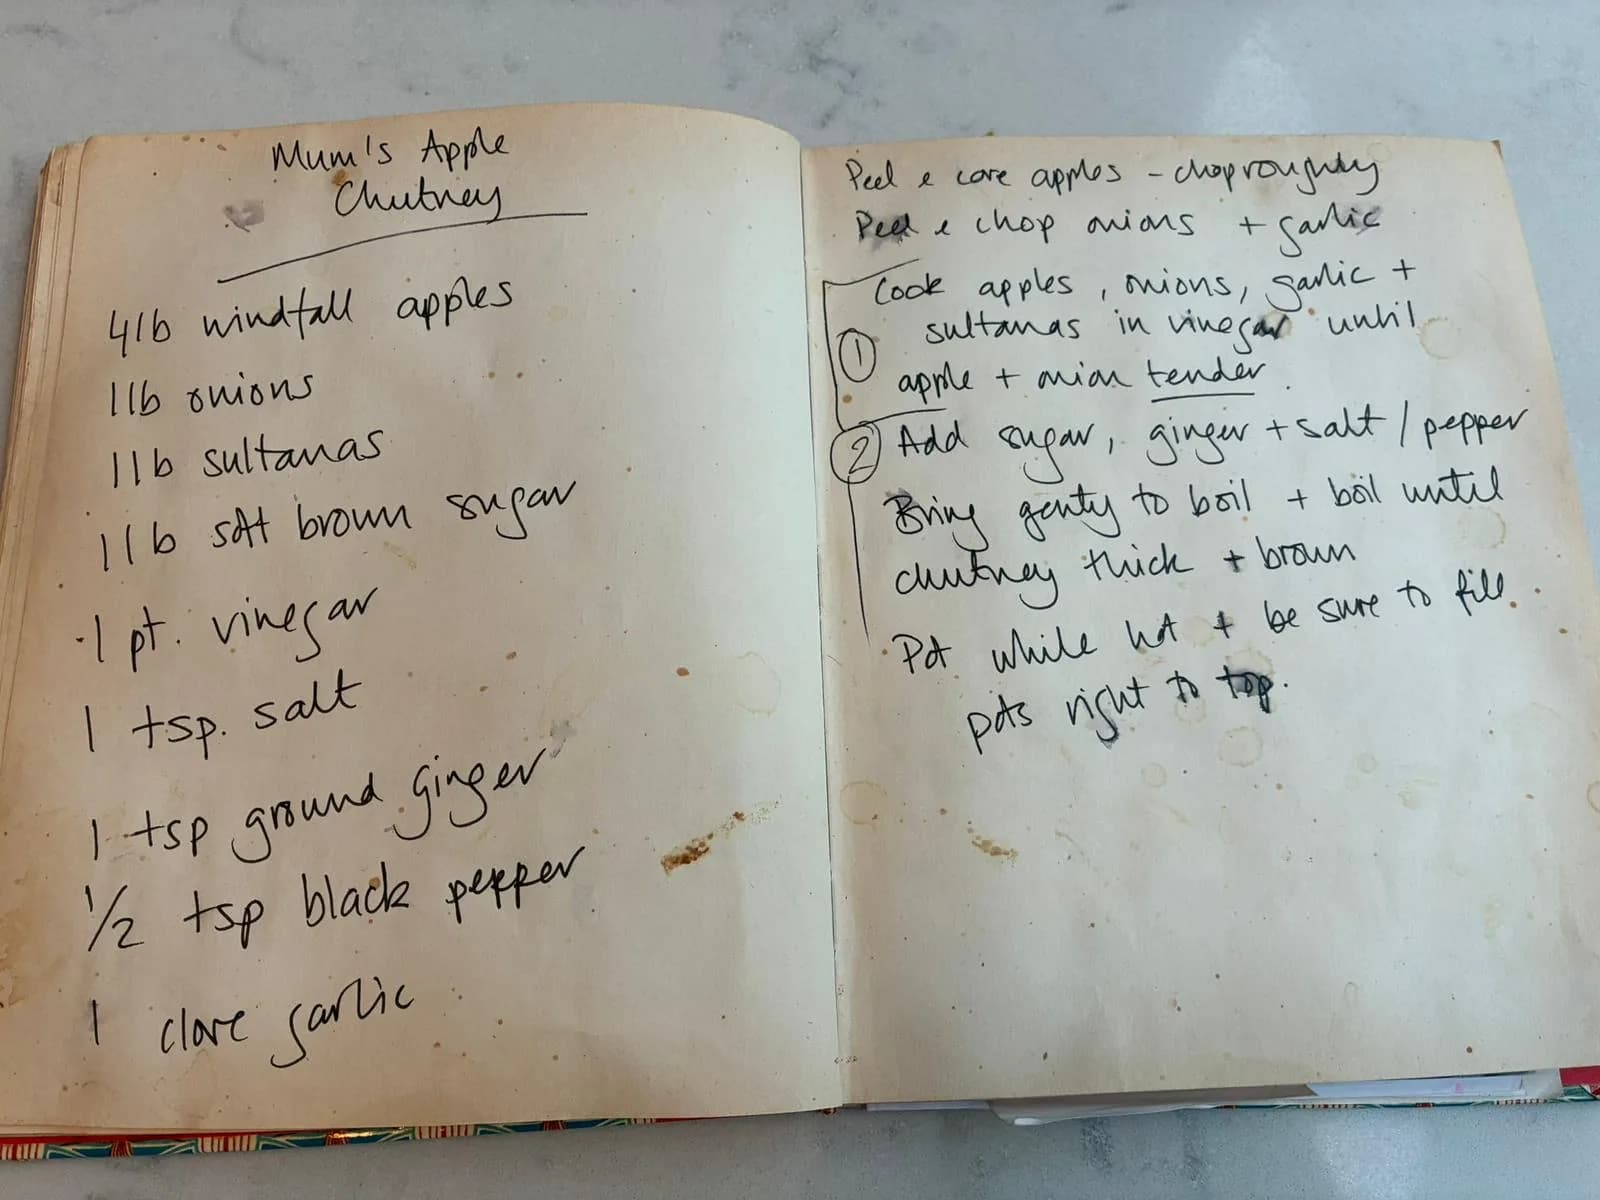 Mum's Apple
Chutney
4lb windfall apples
1lb onions
1lb sultanas
1lb soft brown sugar
1 pt. vinegar
1 tsp. salt
1 tsp ground ginger
1/2 tsp black pepper
1 clove garlic
Peel e core apples - chop roughly
Peel e chop onions + garlic
Cook apples, onions, garlic +
sultanas in vinegar until
① apple + onion tender.
② Add sugar, ginger + salt / pepper
Bring genty to boil + boil until
chutney thick + brown
Pot while hot + be sure to fill
pots right to top.